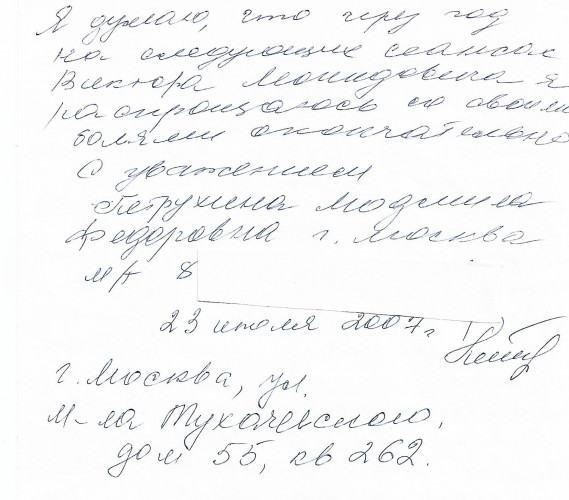 Я думаю, что чрез год
на следующих сеансах
Виктора Леонидовича я
распрощаюсь со своими
болями окончательно
С уважением
Петрухина Людмила
Федоровна г. Москва
м/т 8
23 июля 2007г
г. Москва, ул.
М-ла Тухачевского,
дом 55, кв 262.